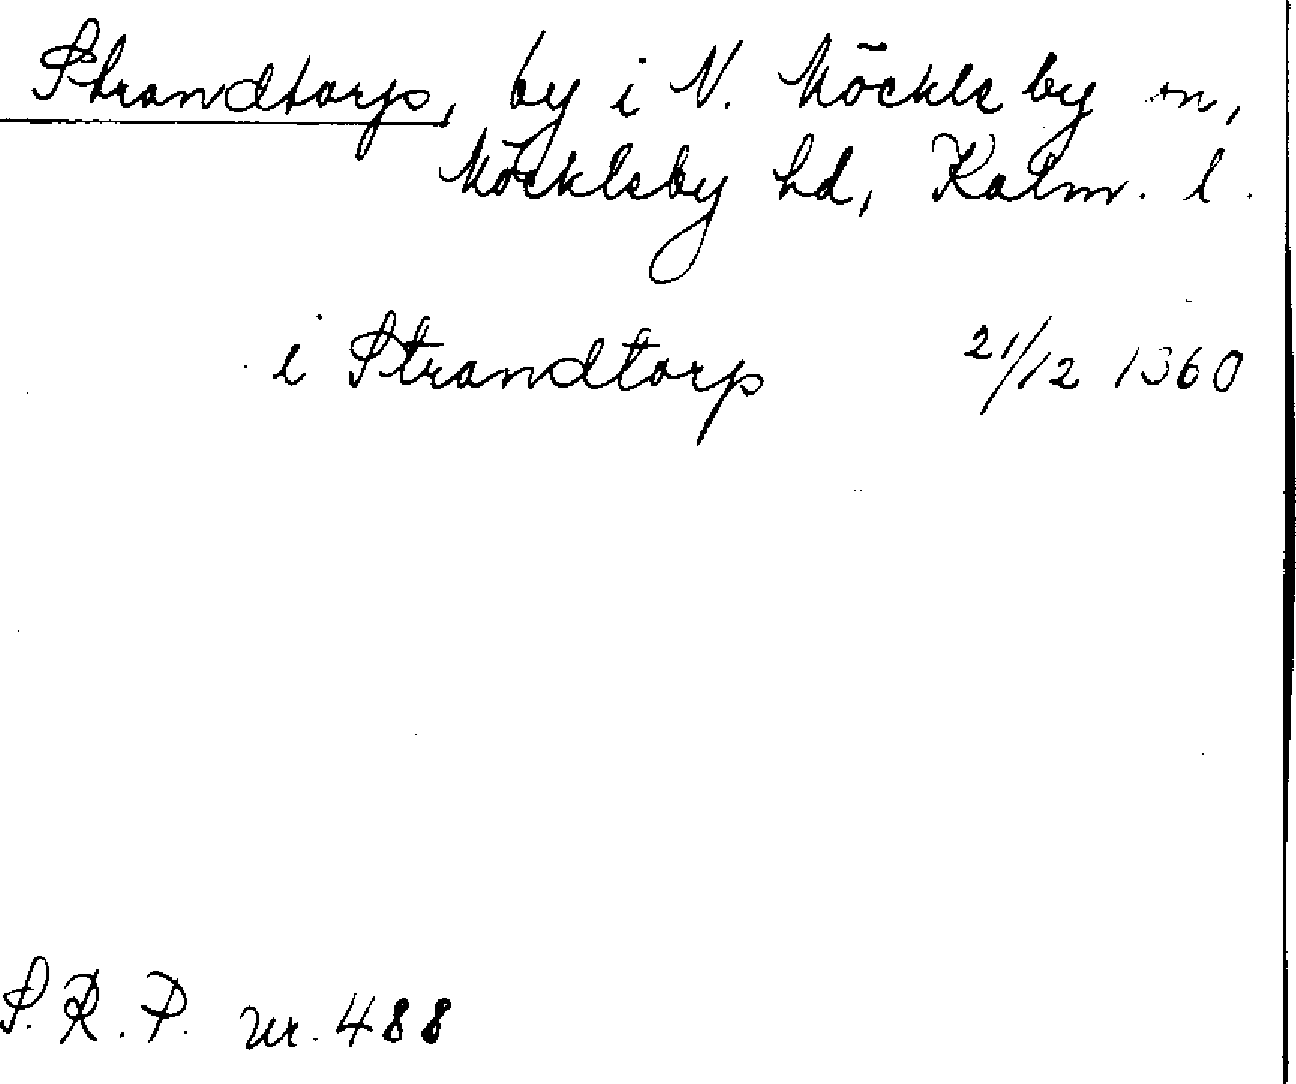 Strandtorp, by i N. Möckleby sn,
Möckleby hd, Kalm. l.
i Strandtorp 21/12 1360
S.R.P. nr. 488